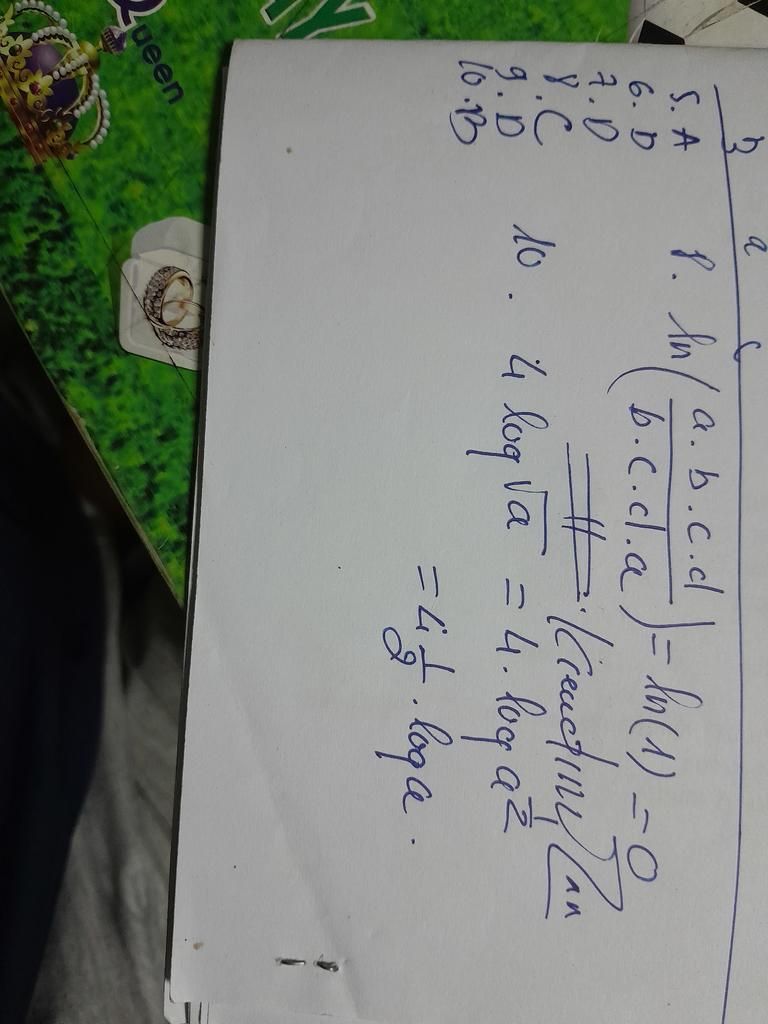 Queen
b a c
5. A
6. D
7. D
8. C
9. D
10. B
8. ln(a.b.c.d / b.c.d.a) = ln(1) = 0
10. 4 log √a = 4. log a^1/2
= 4. 1/2 . log a.